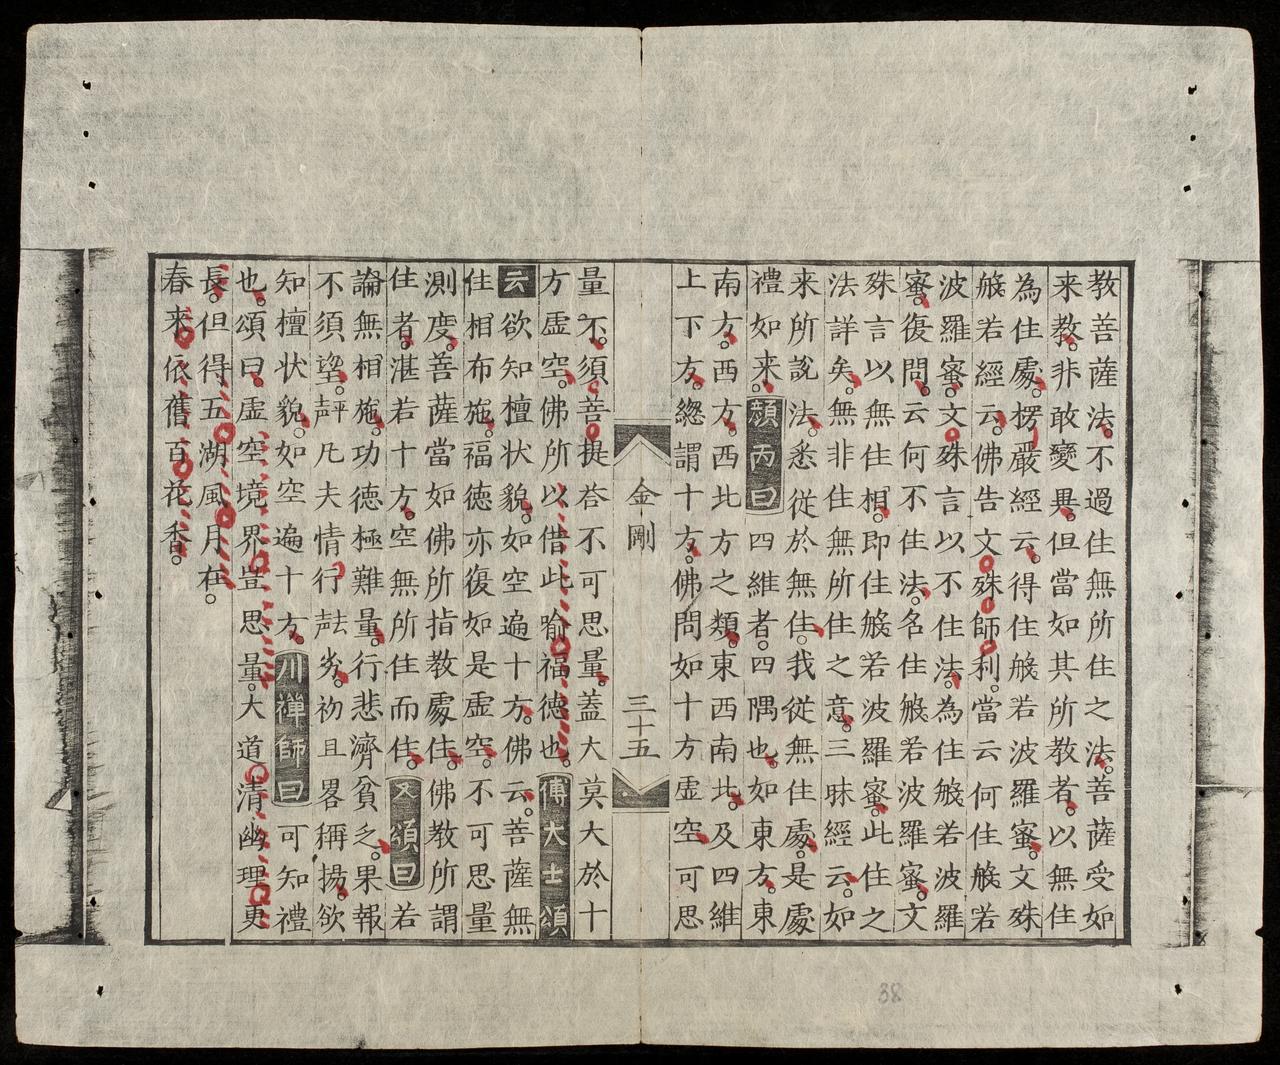 教菩薩法。不過住無所住之法。菩薩受如
来教。非敢變異。但當如其所教者。以無住
為住處。楞嚴經云。得住般若波羅蜜。文殊
般若經云。佛告文殊師利。當云何住般若
波羅蜜。文殊言以不住法。為住般若波羅
蜜。復問。云何不住法。名住般若波羅蜜。文
殊言以無住相。即住般若波羅蜜。此住之
法詳矣。無非住無所住之意。三昧經云。如
来所說法。悉從於無住。我從無住處。是處
禮如来。顏丙曰四維者。四隅也。如東方。東
南方。西方。西北方之類。東西南北。及四維
上下方。緫謂十方。佛問如十方虛空可思
金剛 三十五
量不。須菩提荅不可思量。蓋大莫大於十
方虛空。佛所以借此喻福德也。傅大士頌
云欲知檀状貌。如空遍十方。佛云。菩薩無
住相布施。福徳亦復如是虛空。不可思量
測度。菩薩當如佛所指教處住。佛教所謂
住者。湛若十方。空無所住而住。又頌曰若
論無相施。功徳極難量。行悲濟貧乏。果報
不須望。凡夫情行劣。初且畧稱揚。欲
知檀状貌。如空遍十方。川禪師曰可知禮
也。頌曰。虛空境界豈思量。大道清幽理更
長。但得五湖風月在。
春来依舊百花香。
38